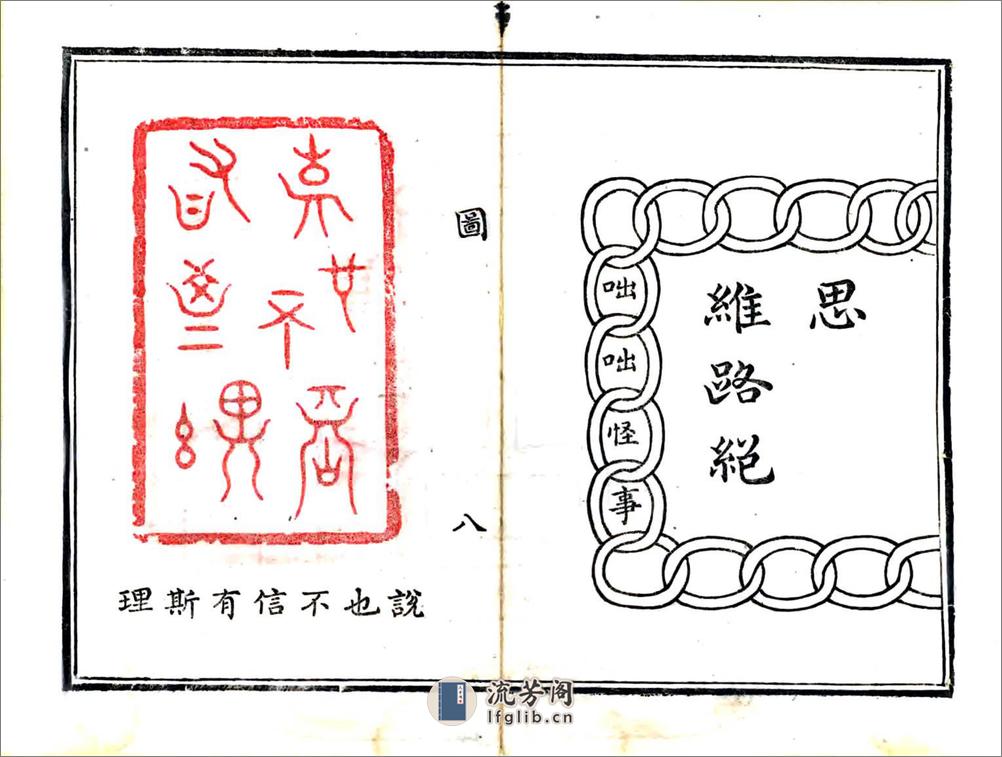 思
維路絕
咄咄怪事
圖 八
說也不信有斯理
流芳阁
lfglib.cn